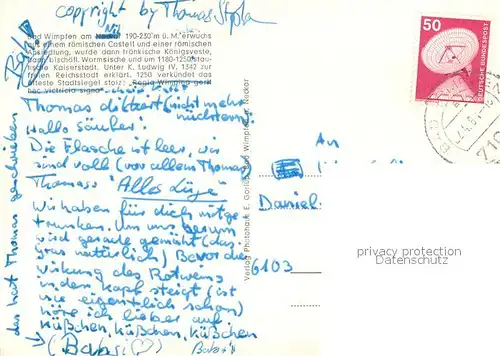 copyright by Thomas
Bad Wimpfen am Neckar 190-230 m ü. M. erwuchs
aus einem römischen Castell und einer römischen
Ansiedlung, wurde dann fränkische Königsveste,
dann bischöfl. Wormsische und um 1180-1250 stau-
fische Kaiserstadt. Unter K. Ludwig IV. 1342 zur
freien Reichsstadt erklärt. 1250 verkündet das
älteste Stadtsiegel stolz: „Regia Wimpina gerit
hec victricia signa"
50
DEUTSCHE BUNDESPOST
Thomas diktiert (nicht mehr
nüchtern)
Hallo säuber!
Die Flasche ist leer, wir
sind voll (vor allem Thomas)
Thomas: "Alles Lüge"
Wir haben für dich mitge-
trunken. Um uns herum
wird gerade gemäht (das
Gras natürlich) Bevor die
Wirkung des Rotweins
in den Kopf steigt (ist
sie eigentlich schon)
höre ich lieber auf
Küßchen, Küßchen, Küßchen
(Babsi ♡)
das hatt Thomas geschrieben
Verlag Photohaus E. Gorlig, Bad Wimpfen a. Neckar
An
Daniel
6103
privacy protection
Datenschutz